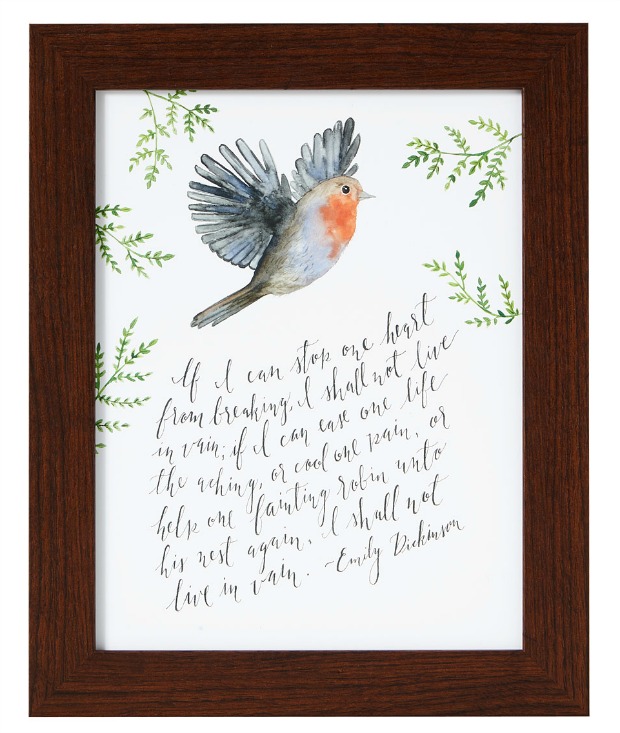 If I can stop one heart
from breaking, I shall not live
in vain; if I can ease one life
the aching, or cool one pain, or
help one fainting robin unto
his nest again, I shall not
live in vain. ~Emily Dickinson